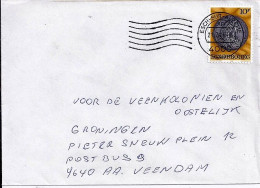 10F
4000
VOOR DE VEENKOLONIEN EN
OOSTELIJK
GRONINGEN
PIETER SNEUW PLEIN 12
POSTBUS 9
9640 AA. VEENDAM